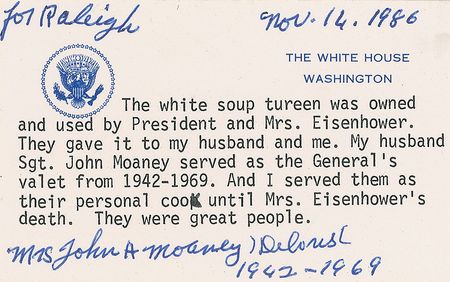 for Raleigh
Nov. 14, 1986
THE WHITE HOUSE
WASHINGTON
The white soup tureen was owned
and used by President and Mrs. Eisenhower.
They gave it to my husband and me. My husband
Sgt. John Moaney served as the General's
valet from 1942-1969. And I served them as
their personal cook until Mrs. Eisenhower's
death. They were great people.
Mrs John A Moaney) Delores(
1942-1969